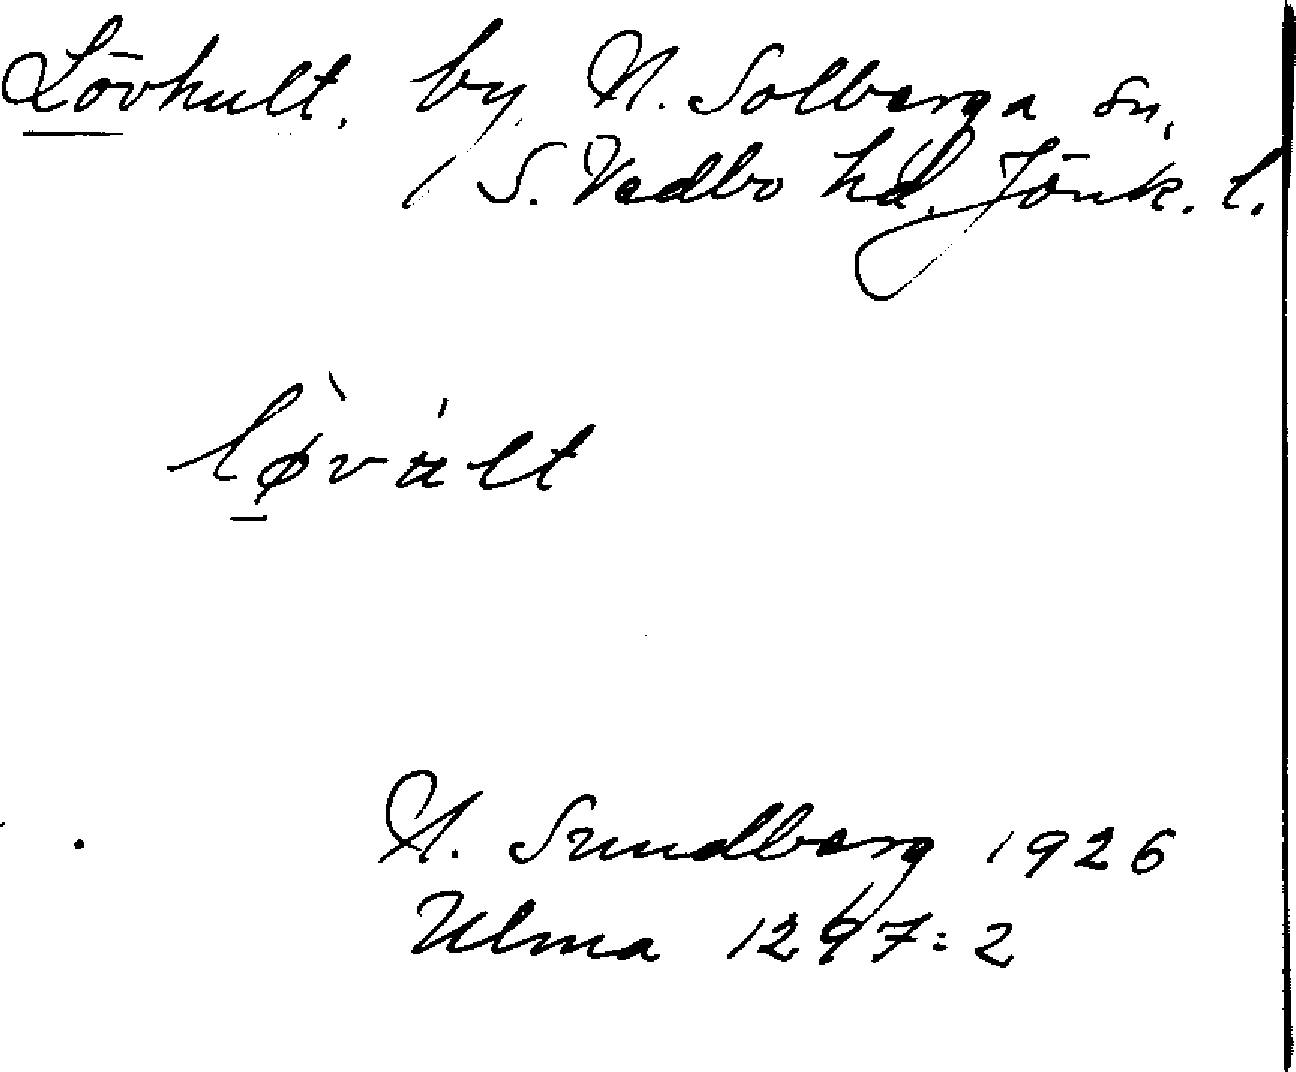 Lövhult. by, N. Solberga sn,
S. Vedbo hd, Jönk. l.
lø̀vält
N. Sundberg 1926
Ulma 1297:2